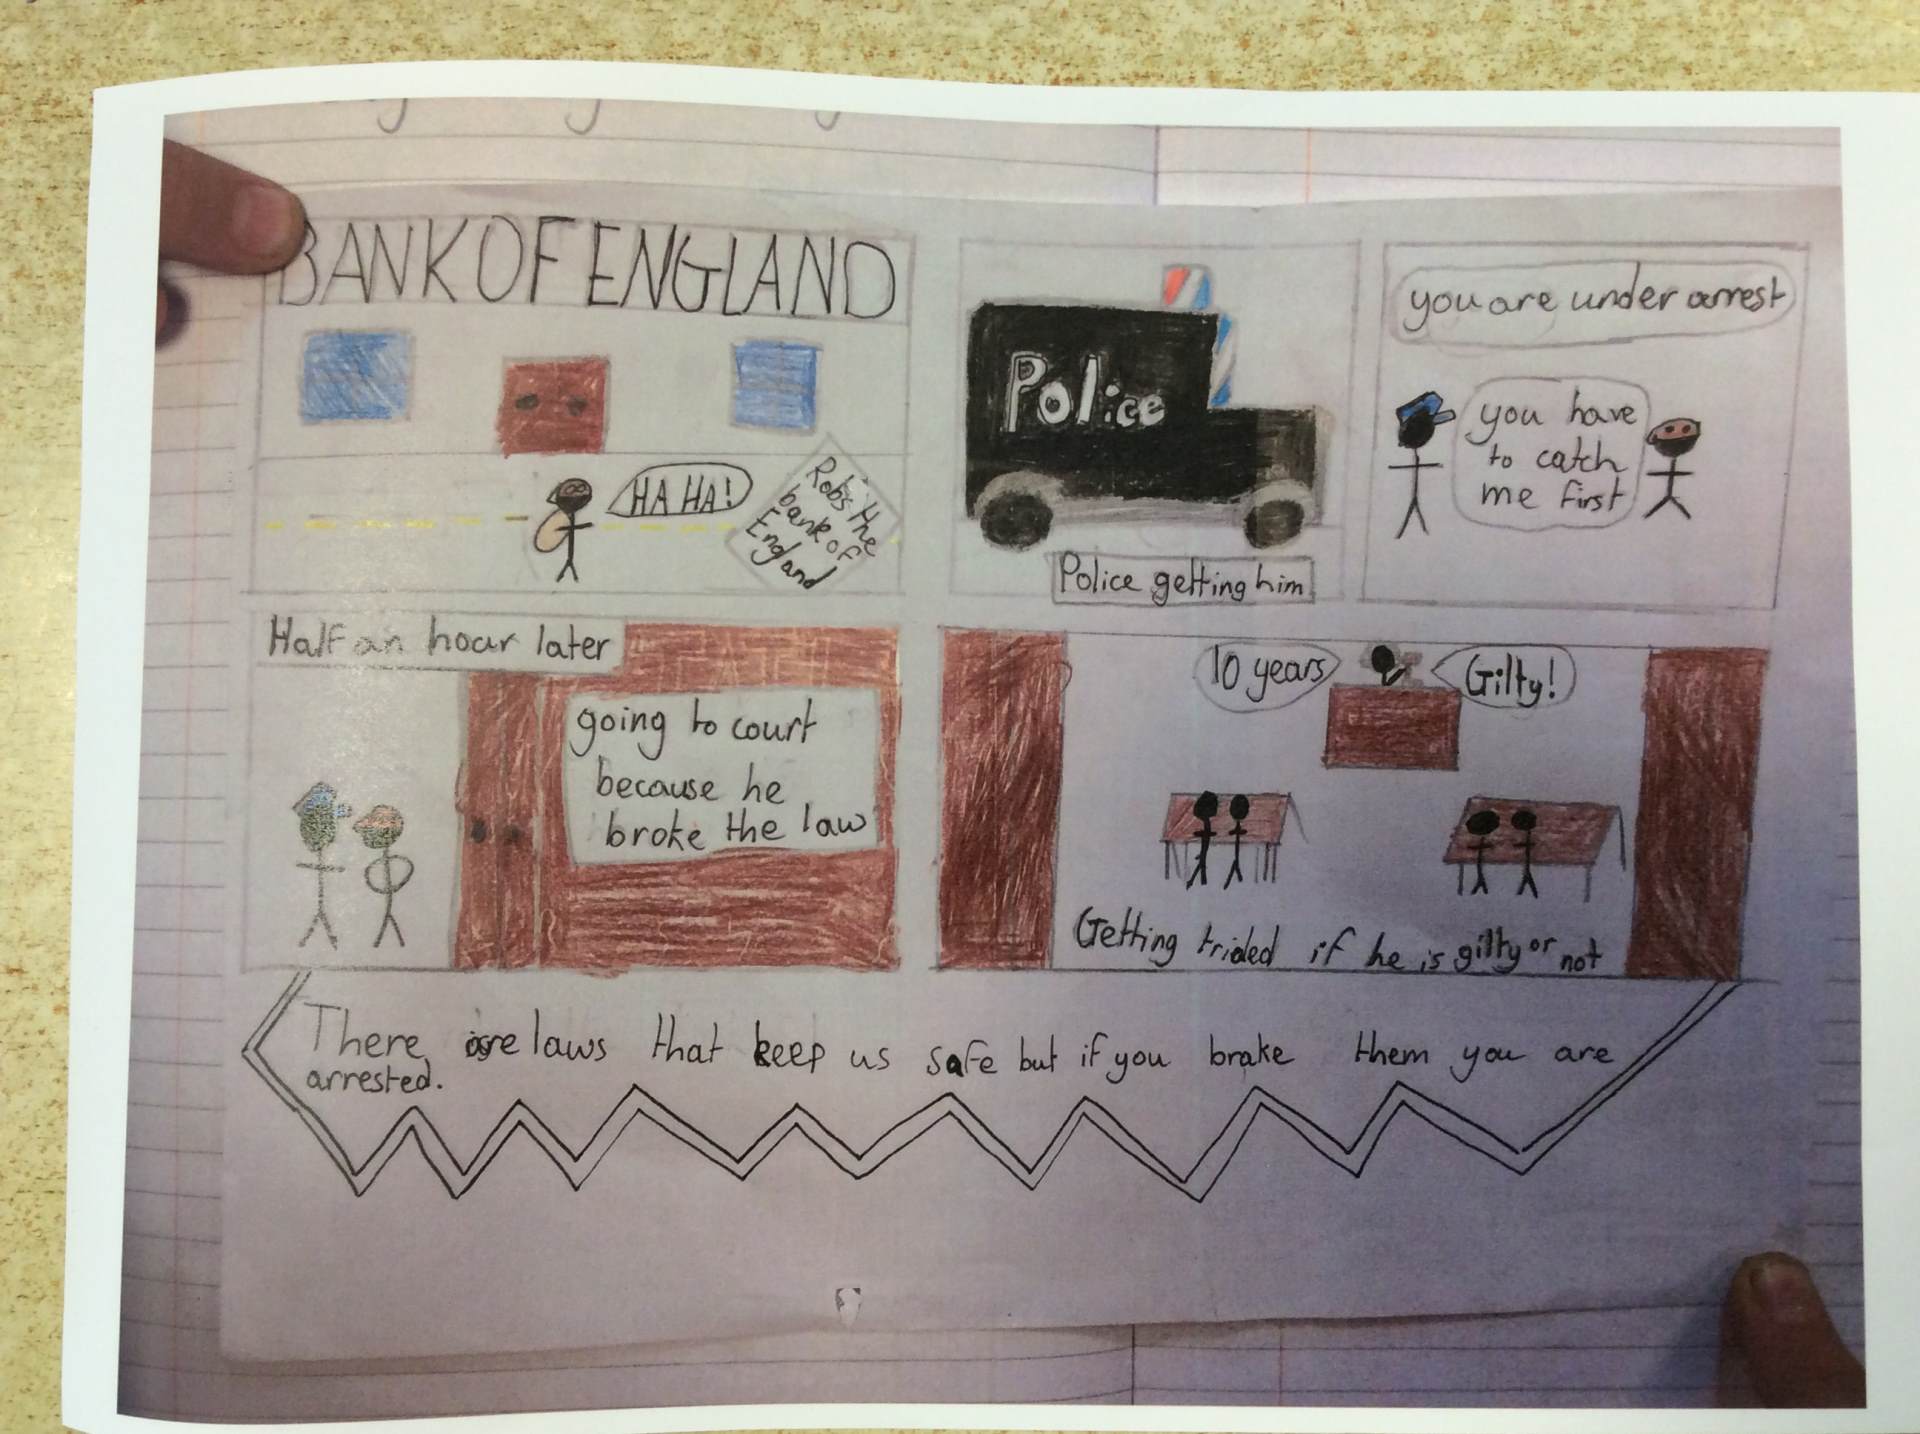 BANK OF ENGLAND
HA HA!
Robs the
bank of
England
Police
Police getting him
you are under arrest
you have
to catch
me first
Half an hour later
going to court
because he
broke the law
10 years
Gilty!
Getting trided if he is gilty or not
There are laws that keep us safe but if you brake them you are
arrested.